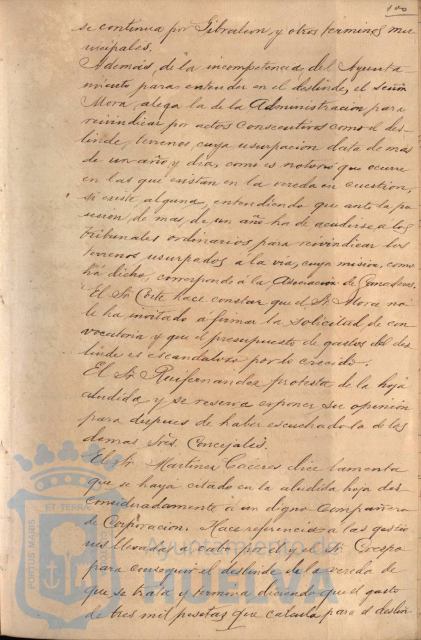 100
se continua por Gibraleon, y otros terminos mu-
nicipales.
Además de la incompetencia del Ayunta-
miento para entender en el deslinde, el Señor
Mora, alega la de la Administracion para
reivindicar por actos consecutivos como el des-
linde, terrenos, cuya usurpacion data de mas
de un año y dia, como es notorio que ocurre
en las que existan en la vereda en cuestion,
si existe alguna, entendiendo que ante la po-
sesion de mas de un año ha de acudirse a los
tribunales ordinarios para reivindicar los
terrenos usurpados a la via, cuya mision, como
ha dicho, corresponde á la Asociacion de Ganaderos.
El Sr. Corte hace constar que el Sr. Mora no
le ha invitado a firmar la solicitud de con-
vocatoria y que el presupuesto de gastos del des-
linde es escandaloso por lo crecido.
El Sr. Ruifernandez protesta de la hoja
aludida y se reserva exponer su opinión
para despues de haber escuchado la de los
demas Sres. Concejales.
El Sr. Martinez Caceres dice lamenta
que se haya citado en la aludida hoja des-
consideradamente a un digno Compañero
de Corporacion. Hace referencia a las gestio-
nes llevadas a cabo por el Sr. Crespo
para conseguir el deslinde de la vereda de
que se trata y termina diciendo que el gasto
de tres mil pesetas que calcula para el deslin-
PORTUS MARIS
ET TERRAE
Ayuntamiento de
HUELVA